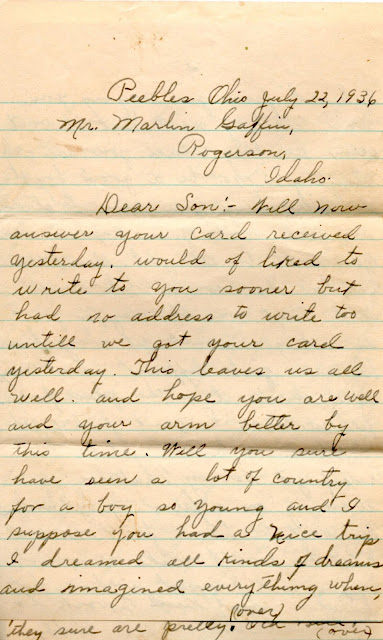 Peebles Ohio July 22, 1936
Mr. Marlin Gaffin,
Rogerson,
Idaho.
Dear Son:- Will now
answer your card received
yesterday. would of liked to
write to you sooner but
had no address to write too
untill we got your card
yesterday. This leaves us all
well. and hope you are well
and your arm better by
this time. Well you sure
have seen a lot of country
for a boy so young and I
suppose you had a nice trip
I dreamed all kinds of dreams
and imagined everything when,
(over)
they sure are pretty.
over